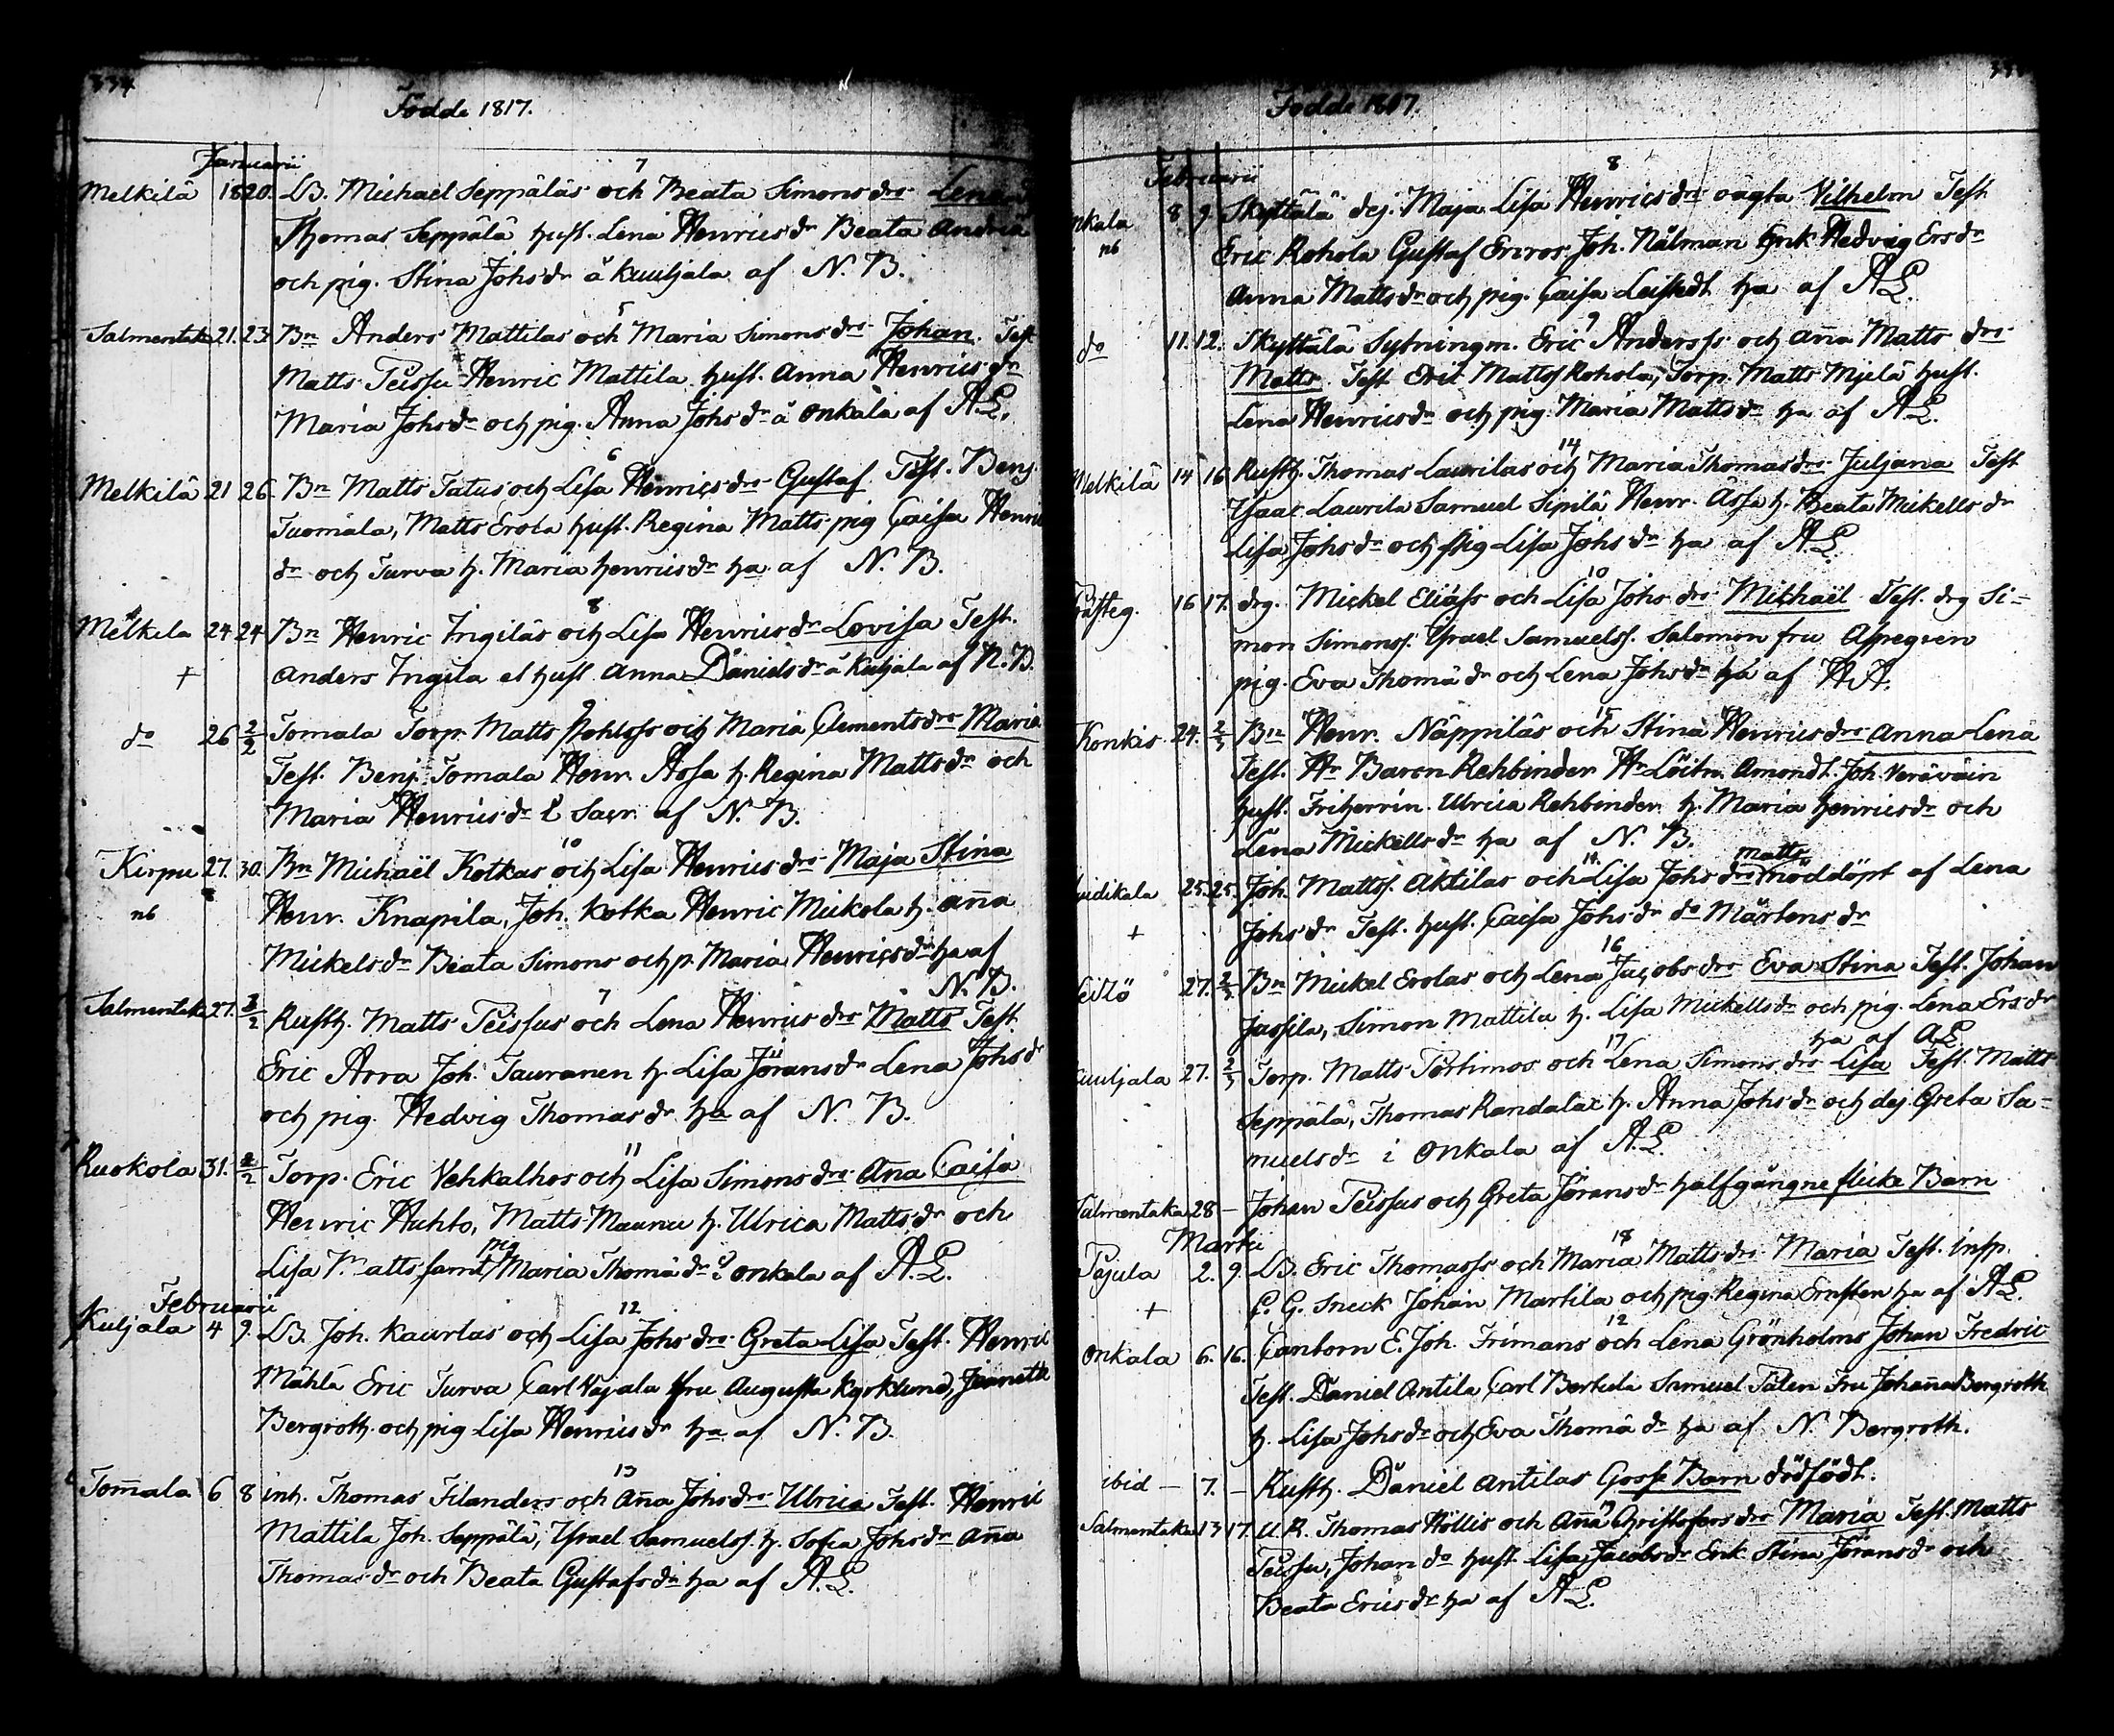 334
Födde 1817.
Januarii
7
Melkilä 18 20. LB. Michael Seppäläs och Beata Simons drs Lena
Thomas Seppälä hust. Lena Henricsdr Beata Andriä
och pig. Stina Johsdr å Kuuljala af N. B.
5
Salmentaka 21. 23. Bn Anders Mattilas och Maria Simons drs Johan. Test
Matts Teissu Henric Mattila hust. Anna Henrics dr
Maria Johsdr och pig. Anna Johs dr å Onkala af A.L.
6
Melkilä 21 26. Bn Matts Tatus och Lisa Henrics drs Gustaf. Test. Benj.
Tuomala, Matts Erola hust. Regina Matts pig Caisa Henric
dr och Turva h. Maria henricsdr ha af N. B.
8
Melkila 24 24 Bn Henric Ingiläs och Lisa Henricsdr Lovisa Test.
+ Anders Ingila et hust Anna Danielsdr å Kuljala af N. B.
9
do 26 2/2 Tomala Torp. Matts Pohlss och Maria Clementsdrs Maria
Test. Benj. Tomala Henr. Assa h. Regina Mattsdr och
Maria Henricsdr i Savr. af N. B.
10
Kirpu 27. 30. Bn Michaël Kotkas och Lisa Henrics drs Maja Stina
nb Henr. Knapila, Joh. Kotka Henric Mickola h. Aña
Mickelsdr Beata Simons och p. Maria Henricsdr ha af
N. B.
7
Salmentaka 27. 2/2 Rusth. Matts Teissus och Lena Henrics drs Matts Test.
Eric Arra Joh. Tauranen h. Lisa Jöransdr Lena Johsdr
och pig. Hedvig Thomasdr ha af N. B.
11
Ruokola 31. 2/2 Torp. Eric Vehkalhos och Lisa Simons drs Aña Caisa
Henric Huhto, Matts Maunu h. Ulrica Matts dr och
Lisa Matts samt pig Maria Thomä dr i Onkala af A.L.
Februarii
12
Kuljala 4 9. LB. Joh. Kaurlas och Lisa Johs drs Greta Lisa Test. Henric
Mähla Eric Turva Carl Vajala fru Augusta Kyrklund, Jeanette
Bergroth och pig Lisa Henricsdr ha af N. B.
13
Tom̄ala 6 8 inh. Thomas Filanders och Aña Johs drs Ulrica Test. Henric
Mattila Joh. Seppälä, Ysrael Samuelss. h. Sofia Johsdr Aña
Thomas dr och Beata Gustafsdr ha af A.L.
Födde 1817.
Februarii
8
nkala 8 9. Skyttälä dej. Maja Lisa Henricsdrs oägta Vilhelm Test.
nb Eric Rohola Gustaf Joh. Nälman Enk. Hedvig Ersdr
Anna Mattsdr och pig. Caisa Leistedt ha af AL.
9
do 11. 12. Skyttälä Sytningm. Eric Anderss. och Aña Matts drs
Matts. Test. Eric Mattss Rohola, Torp. Matts Mjelä hust.
Lena Henricsdr och pig. Maria Mattsdr ha af AL.
14
Melkilä 14 16 Rusth. Thomas Laurilas och Maria Thomasdrs Juljana Test
Ysaac Laurila Samuel Sipilä Henr. Assa h. Beata Mickellsdr
Lisa Johsdr och pig Lisa Johsdr ha af AL.
10
Gästeg. 16 17. drg. Mickel Eliass och Lisa Johs drs Michaël Test. drg Si=
mon Simonss. Ysrael Samuelss. Salomon fru Aspegren
pig. Eva Thomä dr och Lena Johsdr ha af A.A.
15
Konkis. 24. 2/3 Bn Henr. Näppiläs och Stina Henrics drs Anna Lena
Test. Hr Baron Rehbinder Hr Löitn. Amondt. Joh. Veräväin
hust. Friherrin. Ulrica Rehbinder h. Maria henricsdr och
Lena Mickellsdr ha af N. B.
14
Matts
idikala 25. 25. Joh. Mattss. Aktilas och Lisa Johs drs nöddöpt af Lena
+ Johsdr Test. hust. Caisa Johsdr do Mårtensdr
16
eitiö 27. 2/3 Bn Mickel Erolas och Lena Jacobs drs Eva Stina Test. Johan
Jussila, Simon Mattila h. Lisa Mickellsdr och pig. Lena Ersdr
ha af AL.
17
uuljala 27. 2/3 Torp. Matts Portimos och Lena Simons drs Lisa Test. Matts
Seppälä, Thomas Randala h. Anna Johsdr och dej. Greta Sa=
muelsdr i Onkala af A.L.
Salmentaka 28 – Johan Teissus och Greta Jöransdr halfgångne flicke Barn
Martii
18
Pajula 2. 9. LB. Eric Thomass och Maria Matts drs Maria Test. insp.
+ C. G. Sneck Johan Martila och pig. Regina Ernsten ha af AL.
12
Onkala 6. 16. Cantorn E. Joh. Frimans och Lena Grönholms Johan Fredric
Test. Daniel Antila Carl Bertula Samuel Pälen Fru Johaña Bergroth
h. Lisa Johsdr och Eva Thomä dr ha af N. Bergroth.
ibid – 7. – Rusth. Daniel Antilas Gosse Barn dödfödt.
Salmentaka 13 17. U. R. Thomas Höllis och Aña Christofers drs Maria Test. Matts
Teissu, Johan do hust. Lisa Jacobsdr Enk. Stina Jöransdr och
Beata Ericsdr ha af AL.